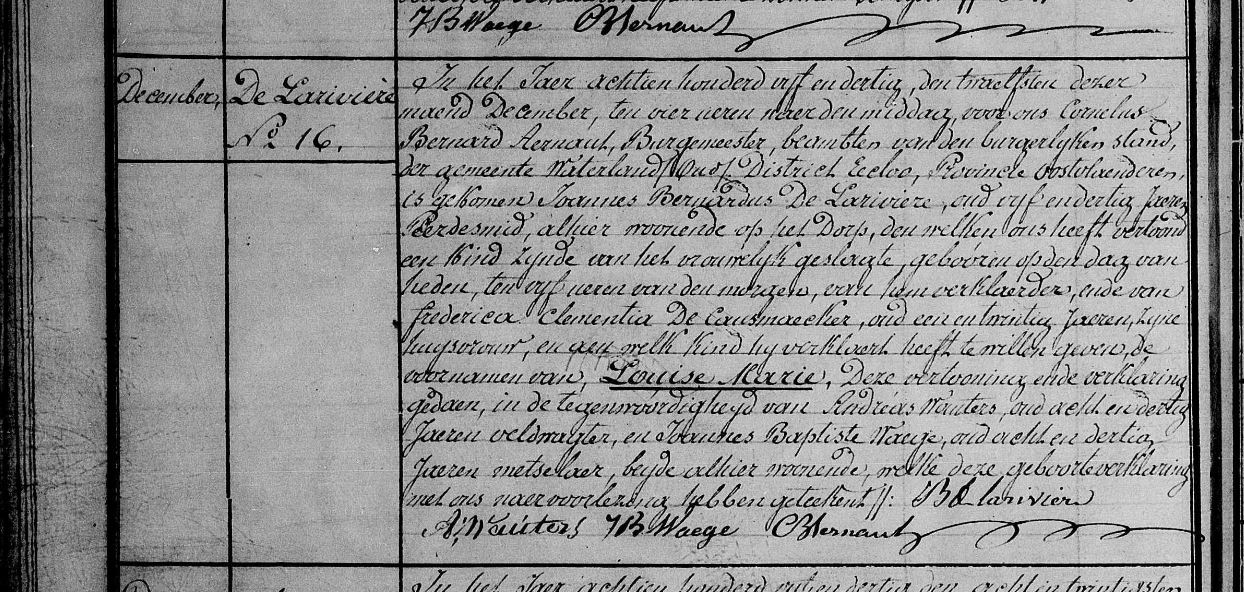 JB Waege CBAernaut
December, De Lariviere
No 16.
In het Jaer achtien honderd vyf en dertig, den twaelfsten dezer
maend December, ten vier ueren naer den middag, voor ons Cornelus
Bernard Aernaut, Burgemeester, beambten van den burgerlyken stand,
der gemeente Waterland/Oud/. District Eecloo, Provincie Oostvlaenderen,
is gekomen Joannes Bernardus De Lariviere, oud vyf en dertig Jaeren
Peerdesmid, alhier woonende op het Dorp, den welken ons heeft vertoond
een kind zynde van het vrouwelyk geslagte, gebooren op den dag van
heden, ten vyf ueren van den morgen, van hem verklaerder, ende van
Frederica Clementia De Causmaecker, oud een en twintig Jaeren, zyne
huysvrouw, en aen welk kind hy verklaert heeft te willen geven, de
voornamen van, Louise Marie. Deze vertooning ende verklaring
gedaen, in de tegenwoordigheyd van Andreas Wauters, oud acht en dertig
Jaeren veldwagter, en Joannes Baptiste Waege, oud acht en dertig
Jaeren metselaer, beyde alhier woonende, welke deze geboorteverklaring
met ons naer voorlezing hebben geteekent //: BD larivier
A: Wauters JB Waege CBAernaut
In het Jaer achtien honderd vyf en dertig den acht en twintigsten